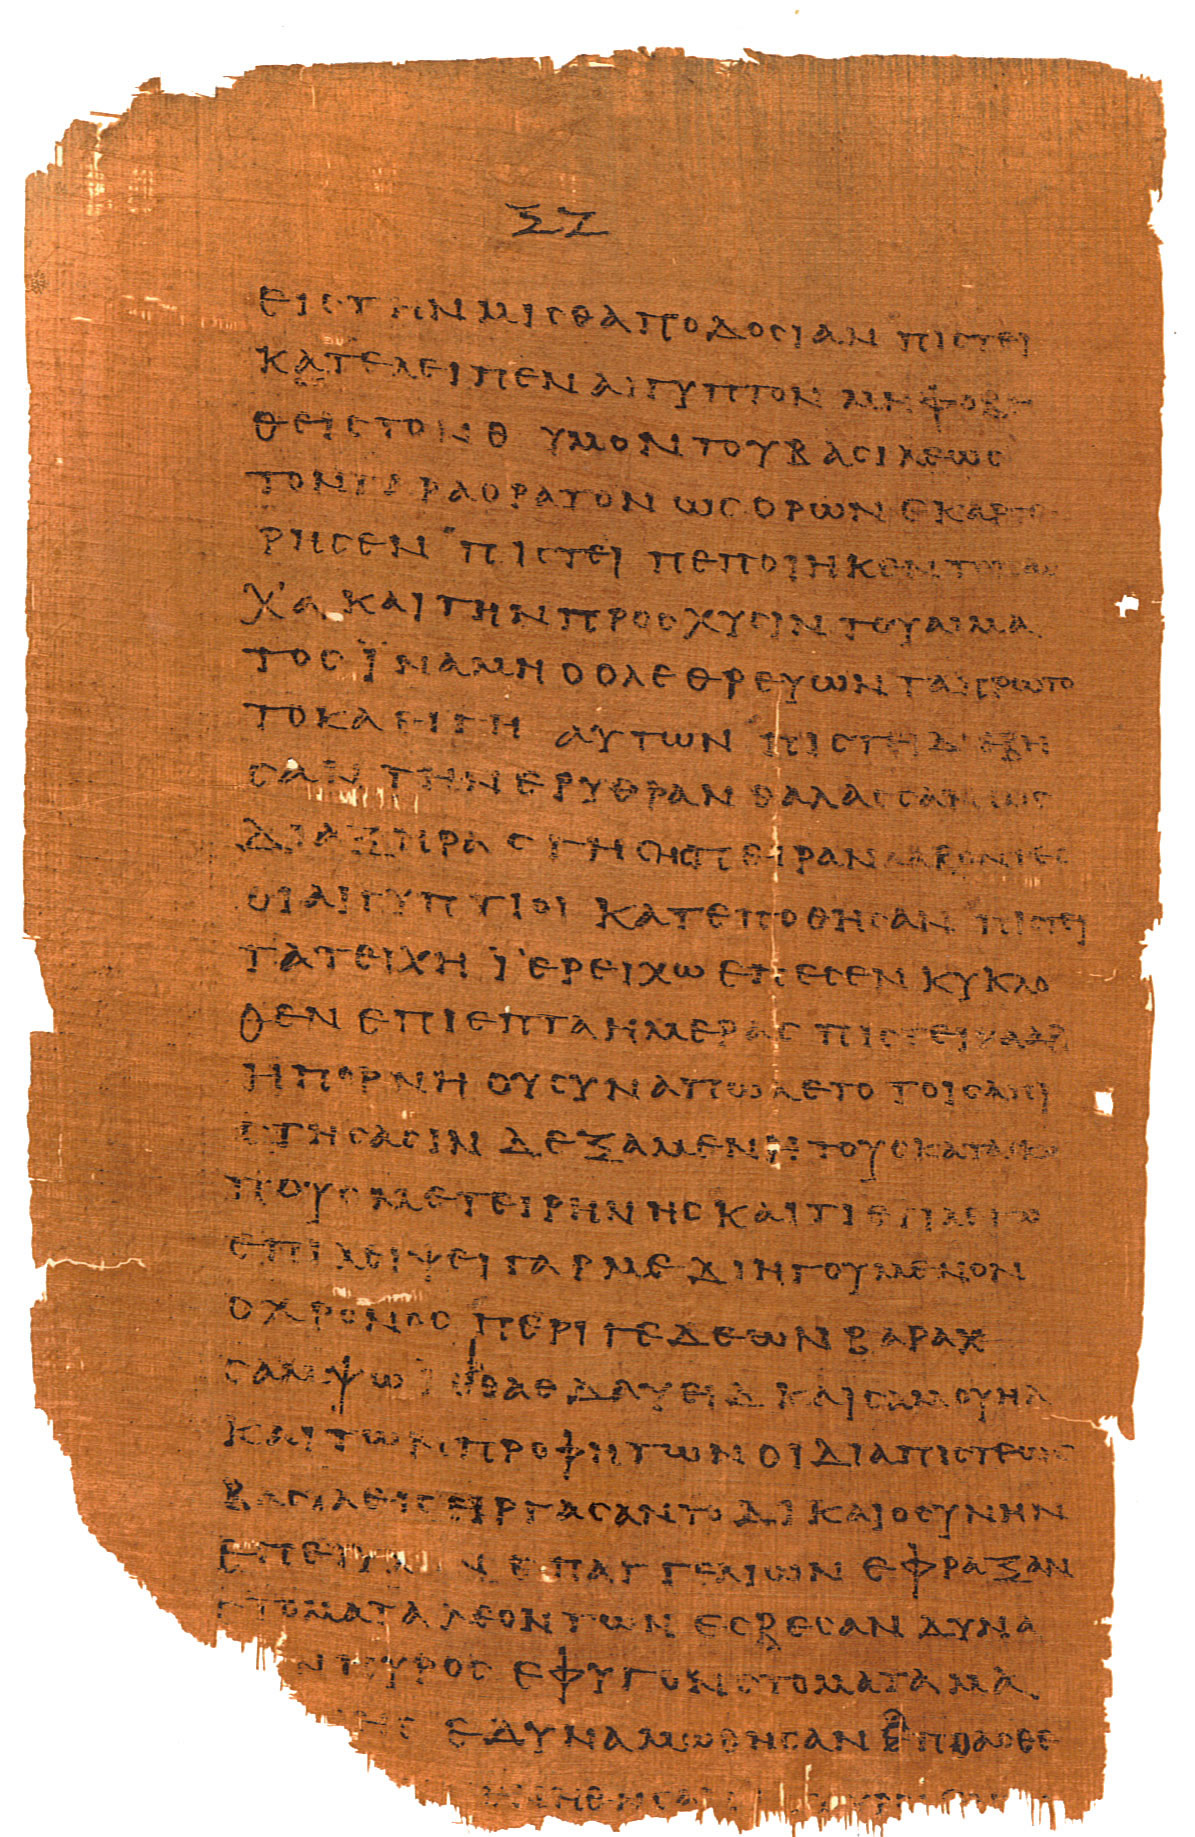 ΣΖ
ΕΙϹΤΗΝΜΙϹΘΑΠΟΔΟϹΙΑΝ ΠΙϹΤΕΙ
ΚΑΤΕΛΕΙΠΕΝ ΑΙΓΥΠΤΟΝ ΜΗ ΦΟΒΗ
ΘΕΙϹΤΟΝΘ ΥΜΟΝΤΟΥΒΑϹΙΛΕΩϹ
ΤΟΝΓΑΡΑΟΡΑΤΟΝ ΩϹΟΡΩΝ ΕΚΑΡΤΕ
ΡΗϹΕΝ ΠΙϹΤΕΙ ΠΕΠΟΙΗΚΕΝΤΟΠΑϹ
ΧΑ ΚΑΙΤΗΝΠΡΟϹΧΥϹΙΝΤΟΥΑΙΜΑ
ΤΟϹ ΪΝΑΜΗΟΟΛΕΘΡΕΥΩΝΤΑΠΡΩΤΟ
ΤΟΚΑ ΘΙΓΗ ΑΥΤΩΝ ΠΙϹΤΗΔΙΕΒΗ
ϹΑΝ ΤΗΝΕΡΥΘΡΑΝ ΘΑΛΑϹϹΑΝ ΩϹ
ΔΙΑΞΗΡΑϹ ΓΗϹΗϹΠΕΙΡΑΝΛΑΒΟΝΤΕϹ
ΟΙΑΙΓΥΠΤΙΟΙ ΚΑΤΕΠΟΘΗϹΑΝ ΠΙϹΤΕΙ
ΤΑΤΕΙΧΗ ΪΕΡΕΙΧΩ ΕΠΕϹΕΝ ΚΥΚΛΟ
ΘΕΝ ΕΠΙΕΠΤΑΗΜΕΡΑϹ ΠΙϹΤΕΙΡΑΑΒ
ΗΠΟΡΝΗ ΟΥϹΥΝΑΠΩΛΕΤΟ ΤΟΙϹΑΠΙ
ϹΤΗϹΑϹΙΝ ΔΕΞΑΜΕΝΗ ΤΟΥϹΚΑΤΑϹΚΟ
ΠΟΥϹΜΕΤΕΙΡΗΝΗϹΚΑΙΤΙΕΤΙΛΕΓΩ
ΕΠΙΛΕΙΨΕΙΓΑΡΜΕ ΔΙΗΓΟΥΜΕΝΟΝ
ΟΧΡΟΝΟϹ ΠΕΡΙ ΓΕΔΕΩΝ ΒΑΡΑΚ
ϹΑΜΨΩ ΙΕΦΘΑΕ ΔΑΥΕΙΔ ΚΑΙϹΑΜΟΥΗΛ
ΚΑΙΤΩΝΠΡΟΦΗΤΩΝ ΟΙΔΙΑΠΙϹΤΕΩϹ
ΒΑϹΙΛΕΙϹ ΕΙΡΓΑϹΑΝΤΟ ΔΙΚΑΙΟϹΥΝΗΝ
ΕΠΕΤΥΧΟΝ ΕΠΑΓΓΕΛΙΩΝ ΕΦΡΑΞΑΝ
ϹΤΟΜΑΤΑ ΛΕΟΝΤΩΝ ΕϹΒΕϹΑΝ ΔΥΝΑ
ΙΝΠΥΡΟϹ ΕΦΥΓΟΝϹΤΟΜΑΤΑΜΑ
ΗϹ ΕΔΥΝΑΜΩΘΗϹΑΝ ΑΠΟΑϹΘΕ